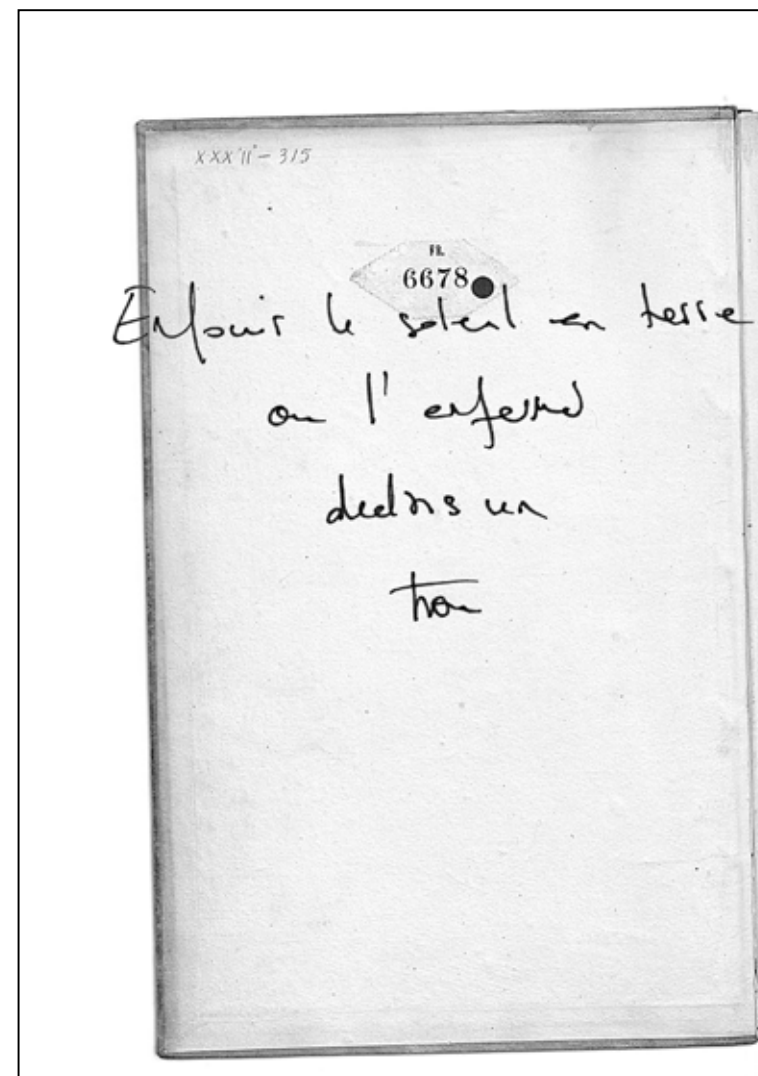 XXX II - 315
FR.
6678
Enfouir le soleil en terre
ou l'enfermé
dedans un
trou